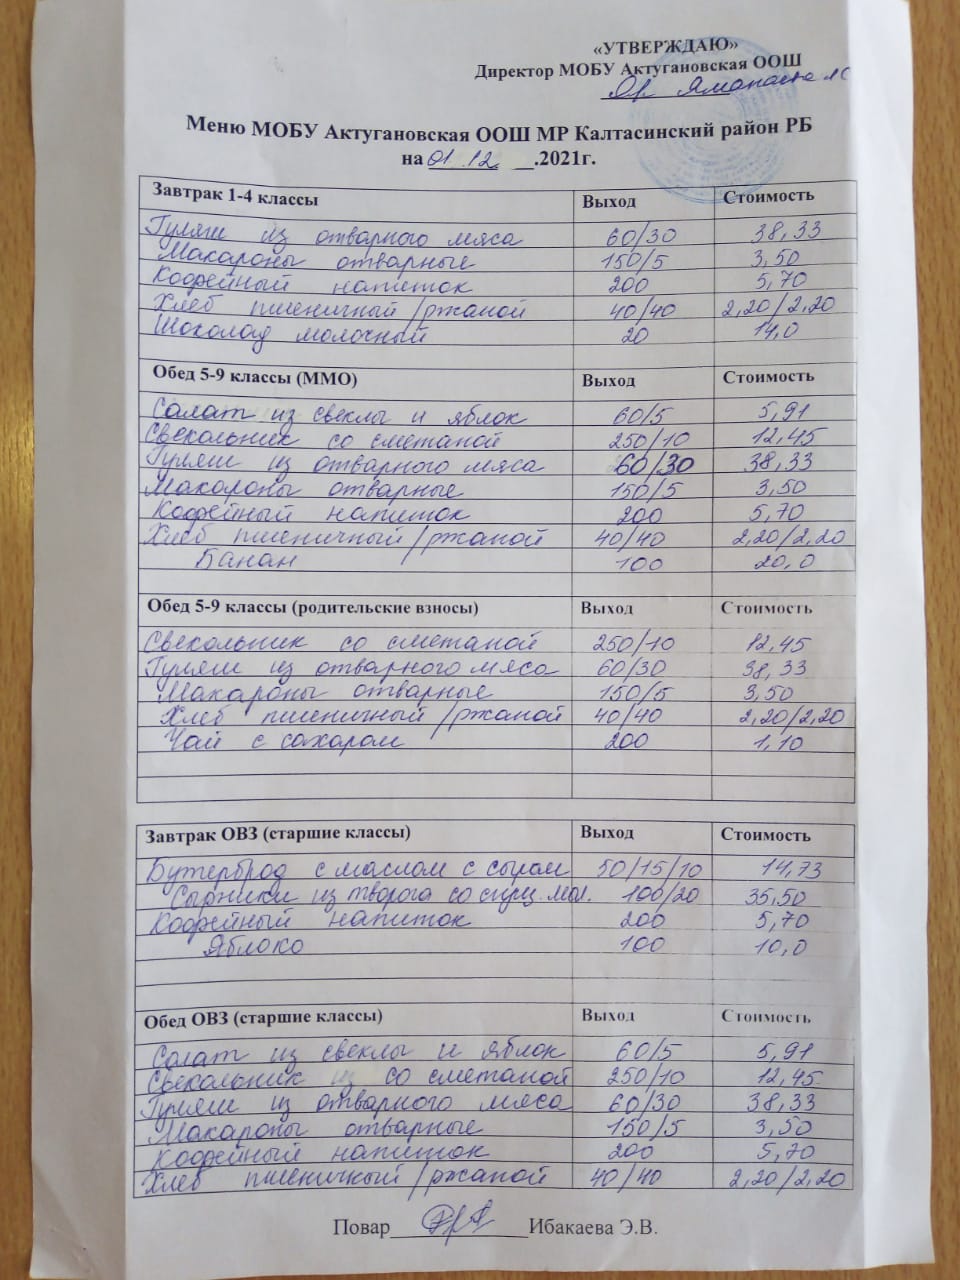 «УТВЕРЖДАЮ»
Директор МОБУ Актугановская ООШ
Яманаева
Меню МОБУ Актугановская ООШ МР Калтасинский район РБ
на 01.12. .2021г.
Завтрак 1-4 классы Выход Стоимость
Гуляш из отварного мяса 60/30 38,33
Макароны отварные 150/5 3,50
Кофейный напиток 200 5,70
Хлеб пшеничный/ржаной 40/40 2,20/2,20
Шоколад молочный 20 14,0
Обед 5-9 классы (ММО) Выход Стоимость
Салат из свеклы и яблок 60/5 5,91
Свекольник со сметаной 250/10 12,45
Гуляш из отварного мяса 60/30 38,33
Макароны отварные 150/5 3,50
Кофейный напиток 200 5,70
Хлеб пшеничный/ржаной 40/40 2,20/2,20
Банан 100 20,0
Обед 5-9 классы (родительские взносы) Выход Стоимость
Свекольник со сметаной 250/10 12,45
Гуляш из отварного мяса 60/30 38,33
Макароны отварные 150/5 3,50
Хлеб пшеничный/ржаной 40/40 2,20/2,20
Чай с сахаром 200 1,10
Завтрак ОВЗ (старшие классы) Выход Стоимость
Бутерброд с маслом с сыром 50/15/10 14,73
Сырники из творога со сгущ. мол. 100/20 35,50
Кофейный напиток 200 5,70
Яблоко 100 10,0
Обед ОВЗ (старшие классы) Выход Стоимость
Салат из свеклы и яблок 60/5 5,91
Свекольник со сметаной 250/10 12,45
Гуляш из отварного мяса 60/30 38,33
Макароны отварные 150/5 3,50
Кофейный напиток 200 5,70
Хлеб пшеничный/ржаной 40/40 2,20/2,20
Повар Ибакаева Э.В.